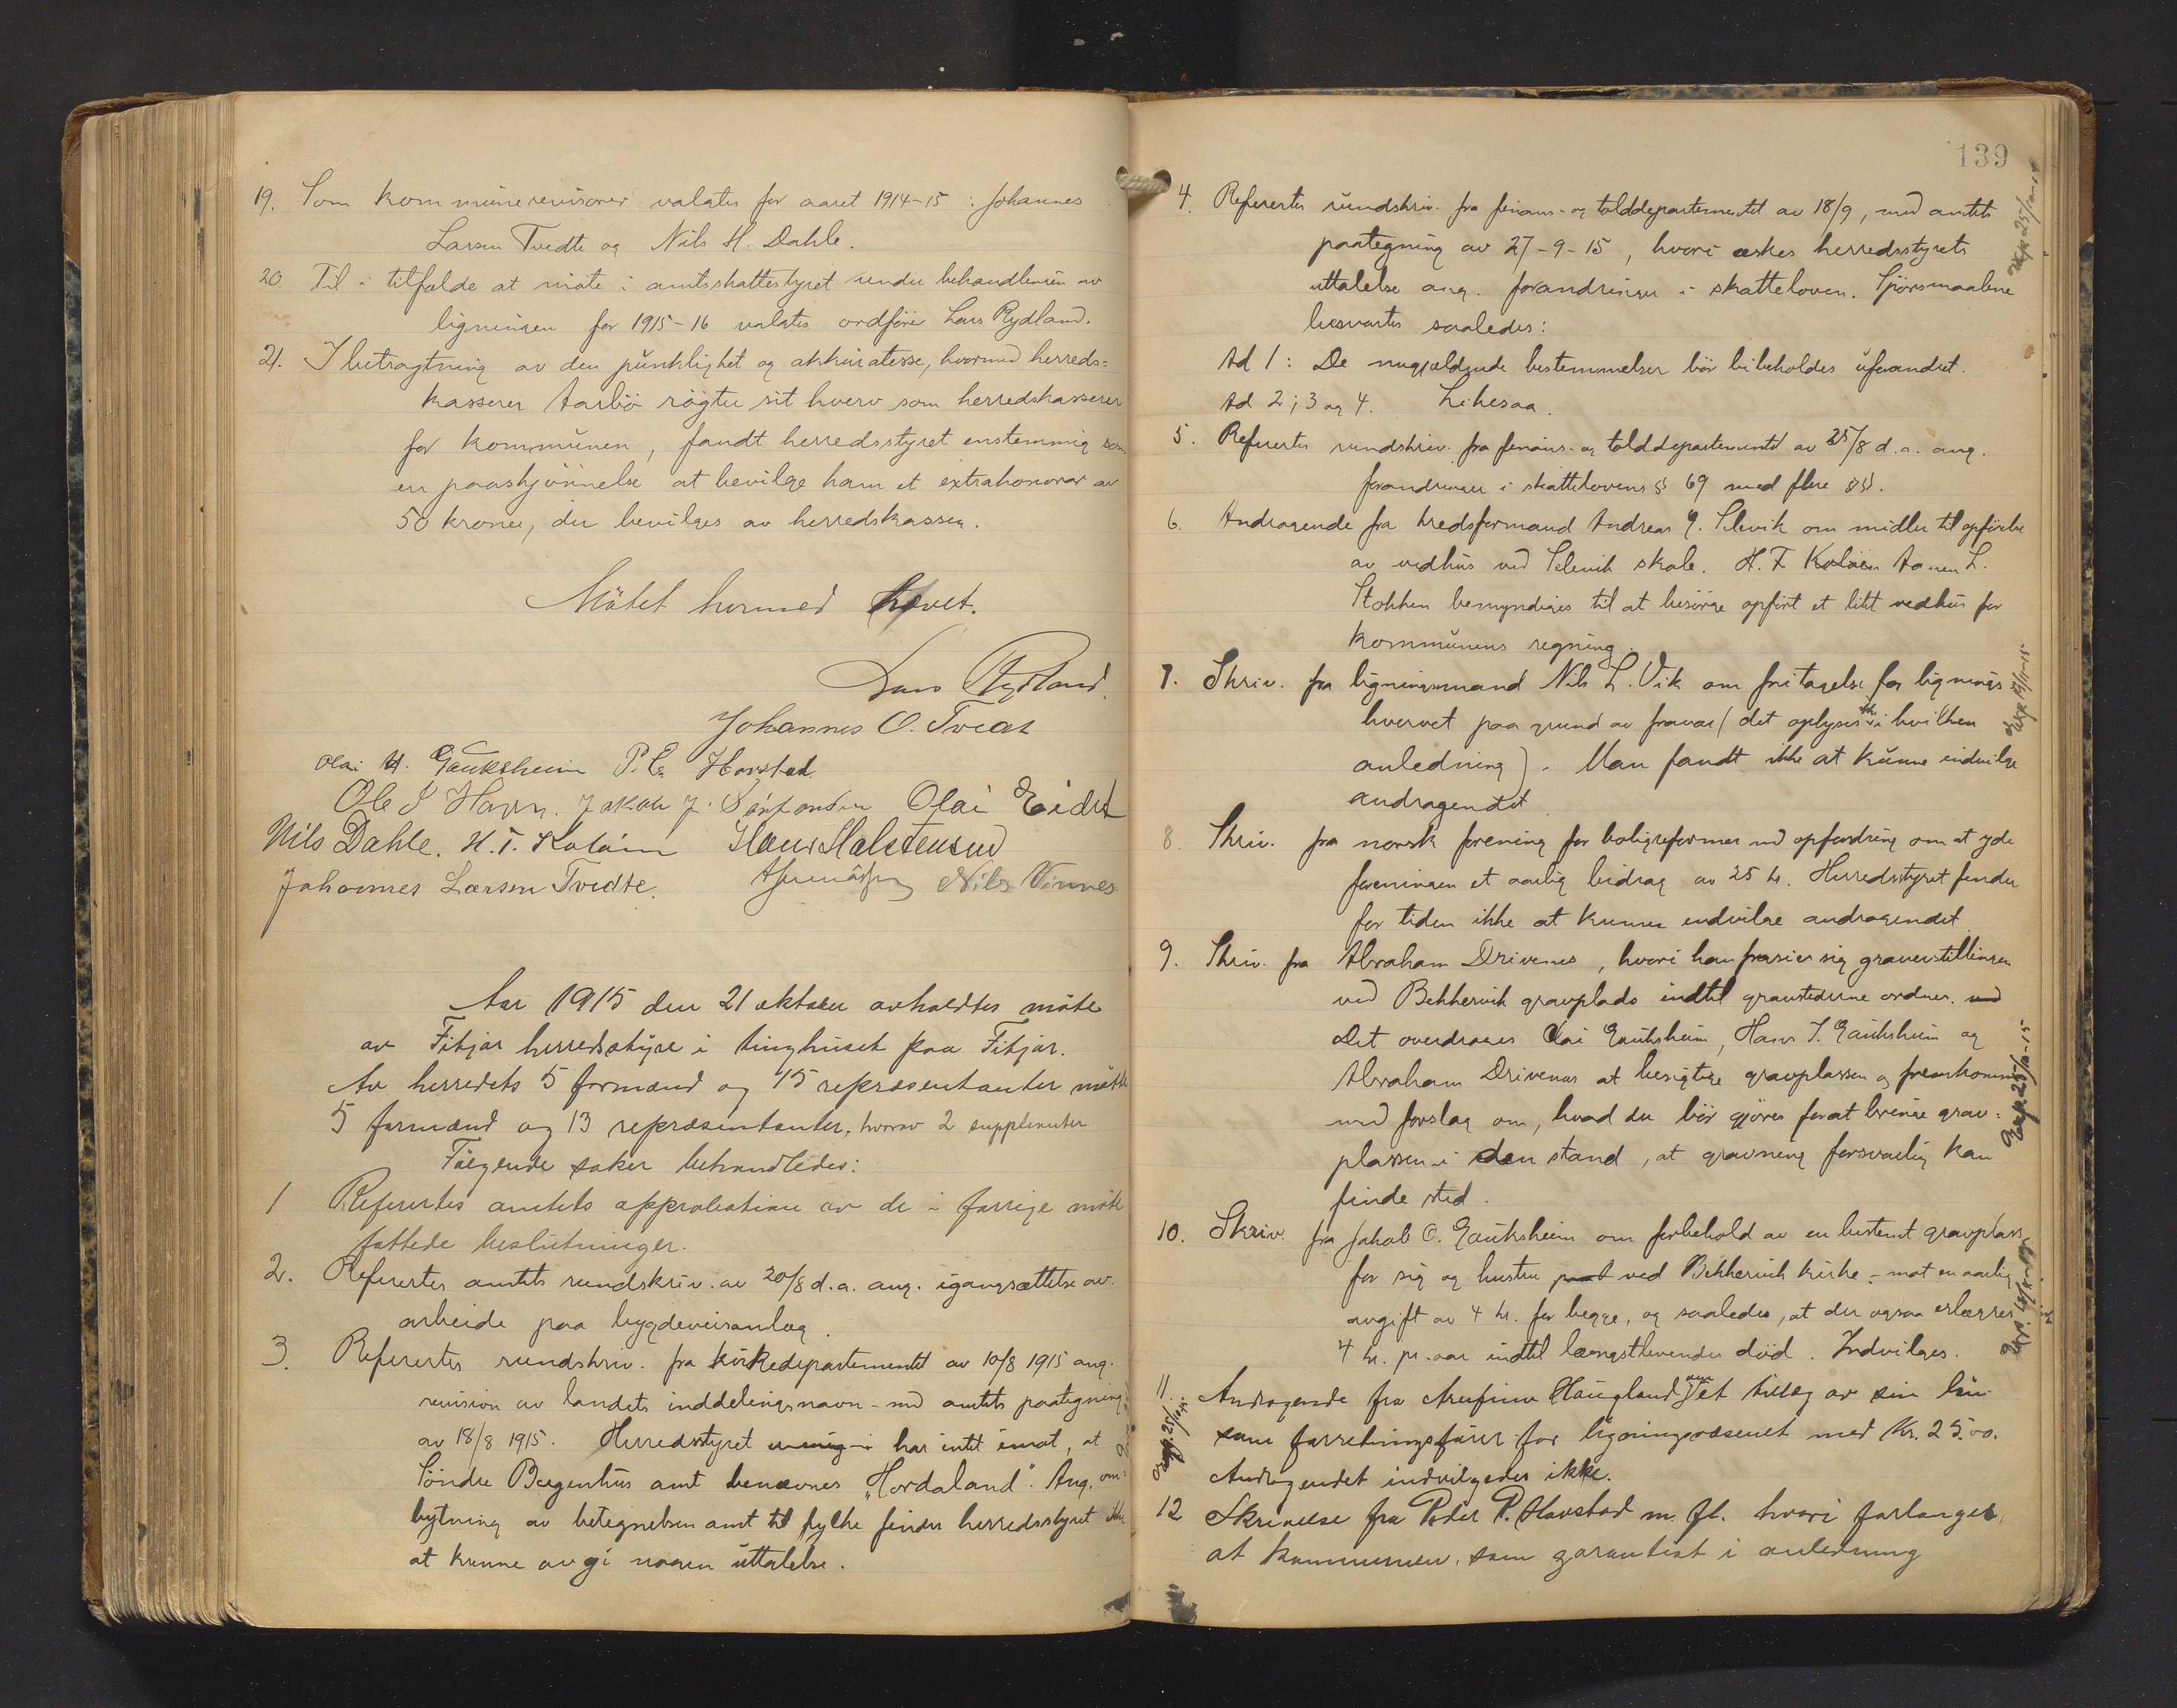 19. Som kommunerevisorer valgtes for aaret 1914-15: Johannes
Larsen Tvedte og Nils H. Dahle.
20. Til i tilfælde at møte i amtsskattestyret under behandlingen av
ligningen for 1915-16 valgtes ordfører Lars Rydland.
21. I betragtning av den punklighet og akkuratesse, hvormed herreds=
kasserer Aarbö rögter sit hverv som herredskasserer
for kommunen, fandt herredsstyret enstemmig som
en paaskjönnelse at bevilge ham et extrahonorar av
50 kroner, der bevilges av herredskassen.
Mötet hermed hævet.
Lars Rydland.
Johannes O. Tveit
Olai H. Gauksheim P. P. Havstad
Ole J Havn. Jakob J. Olai Eide
Nils Dahle. H. T. Koløen Hans Halstensen
Johannes Larsen Tvedte. Nils Vinnes
Aar 1915 den 21 oktober avholdtes möte
av Fitjar herredsstyre i tinghuset paa Fitjar.
Av herredets 5 formænd og 15 repræsentanter mötte
5 formænd og 13 repræsentanter, hvorav 2 supplenter
Fölgende saker behandledes:
1 Refertes amtets approbation av de i forrige möte
fattede beslutninger.
2. Refertes amtets rundskriv. av 20/8 d.a. ang. igangsættelse av
arbeide paa bygdeveisanlæg.
3. Refertes rundskriv. fra kirkedepartementet av 10/8 1915 ang.
revision av landets inddelingsnavn - med amtets paategning
av 18/8 1915. Herredsstyret har intet imot, at
Söndre Bergenhus amt benævnes „Hordaland". Ang. om=
bytning av betegnelsen amt til fylke finder herredsstyret ikke
at kunne avgi nogen uttalelse.
139
4. Refertes rundskriv. fra finans- og tolddepartementet av 18/9, med amtets
paategning av 27-9-15, hvori æskes herredsstyrets
uttalelse ang. forandringer i skatteloven. Spörsmaalene
besvartes saaledes:
Ad 1: De nugjældende bestemmelser bör bibeholdes uforandret.
Ad 2, 3 og 4. Likesaa.
Exp 25/10-15
5. Refertes rundskriv. fra finans- og tolddepartementet av 25/8 d.a. ang.
forandringer i skattelovens § 69 med flere §§.
6. Andragende fra kredsformand Andreas G. Selevik om midler til opförelse
av vedhus ved Selevik skole. H. T. Koløen Aamen L.
Stokken bemyndiges til at besörge opfört et litt vedhus for
kommunens regning.
7. Skriv. fra ligningsmand Nils L. Vik om fritagelse for lignings
hvervet paa grund av fravær (det oplyses ikke i hvilken
anledning). Man fandt ikke at kunne indvilge
andragendet
8. Skriv. fra norsk forening for boligreformer med opfordring om at yde
foreningen et aarlig bidrag av 25 kr. Herredsstyret finder
for tiden ikke at kunne indvilge andragendet
9. Skriv. fra Abraham Drivenes, hvori han frasier sig graverstillingen
ved Bekkervik gravplads indtil gravstederne ordnes. med
Det overdrages Olai Gauksheim, Hans J. Gauksheim og
Abraham Drivenes at besigtige gravplassen og fremkomme
med forslag om, hvad der bör gjöres forat bringe grav=
plassen i den stand, at gravning forsvarlig kan
finde sted.
Exp. 25/10-15
10. Skriv. fra Jakob O. Gauksheim om forbehold av en bestemt gravplass
for sig og hustru ved Bekkervik kirke - mot en aarlig
avgift av 4 kr. for begge, og saaledes, at der ogsaa erlægges
4 kr. pr. aar indtil længstlevendes död. Indvilges.
11. Andragende fra Anfinn Haugland om et tillæg av sin lön
som forretningsförer for ligningsvæsenet med Kr. 25.00.
Andragendet indvilgedes ikke.
12 Skrivelse fra Peder P. Havstad m. fl. hvori forlanges,
at kommunen, som garantist i anledning